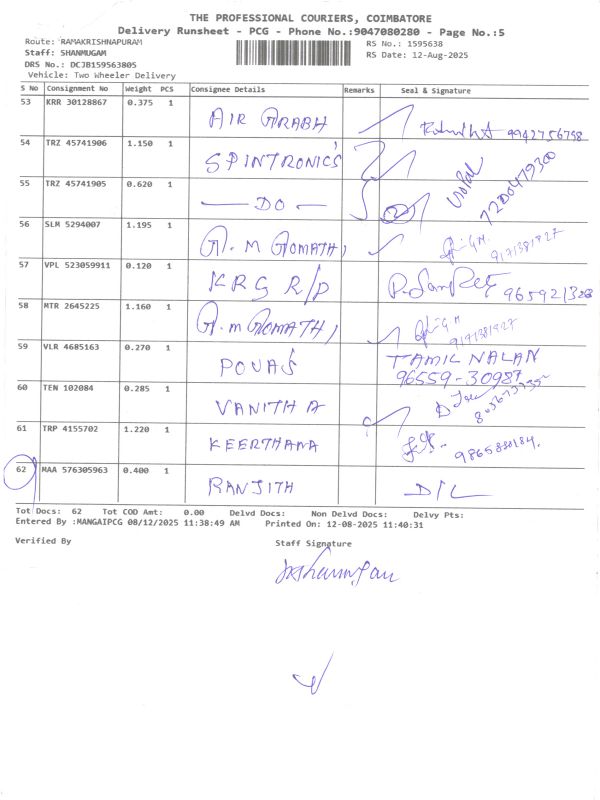 THE PROFESSIONAL COURIERS, COIMBATORE
Delivery Runsheet - PCG - Phone No.:9047080280 - Page No.:5
Route: RAMAKRISHNAPURAM RS No.: 1595638
Staff: SHANMUGAM RS Date: 12-Aug-2025
DRS No.: DCJB159563805
Vehicle: Two Wheeler Delivery
S No Consignment No Weight PCS Consignee Details Remarks Seal & Signature
53 KRR 30128867 0.375 1 AIR ARABH 9942756798
54 TRZ 45741906 1.150 1 SPINTRONICS 7200479300
55 TRZ 45741905 0.620 1 — DO —
56 SLM 5294007 1.195 1 G. M GOMATHI 9171381927
57 VPL 523059911 0.120 1 KRG R/P
58 MTR 2645225 1.160 1 G. M GOMATHI 9171381927
59 VLR 4685163 0.270 1 TAMIL NALAN
96559-30987
60 TEN 102084 0.285 1 VANITHA
61 TRP 4155702 1.220 1 KEERTHANA
62 MAA 576305963 0.400 1 RANJITH D/L
Tot Docs: 62 Tot COD Amt: 0.00 Delvd Docs: Non Delvd Docs: Delvy Pts:
Entered By :MANGAIPCG 08/12/2025 11:38:49 AM Printed On: 12-08-2025 11:40:31
Verified By Staff Signature